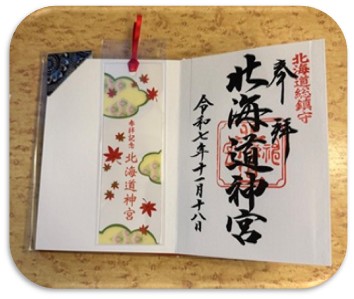 参拝記念
北海道神宮
北海道総鎮守
奉拝
北海道神宮
令和七年十一月十八日